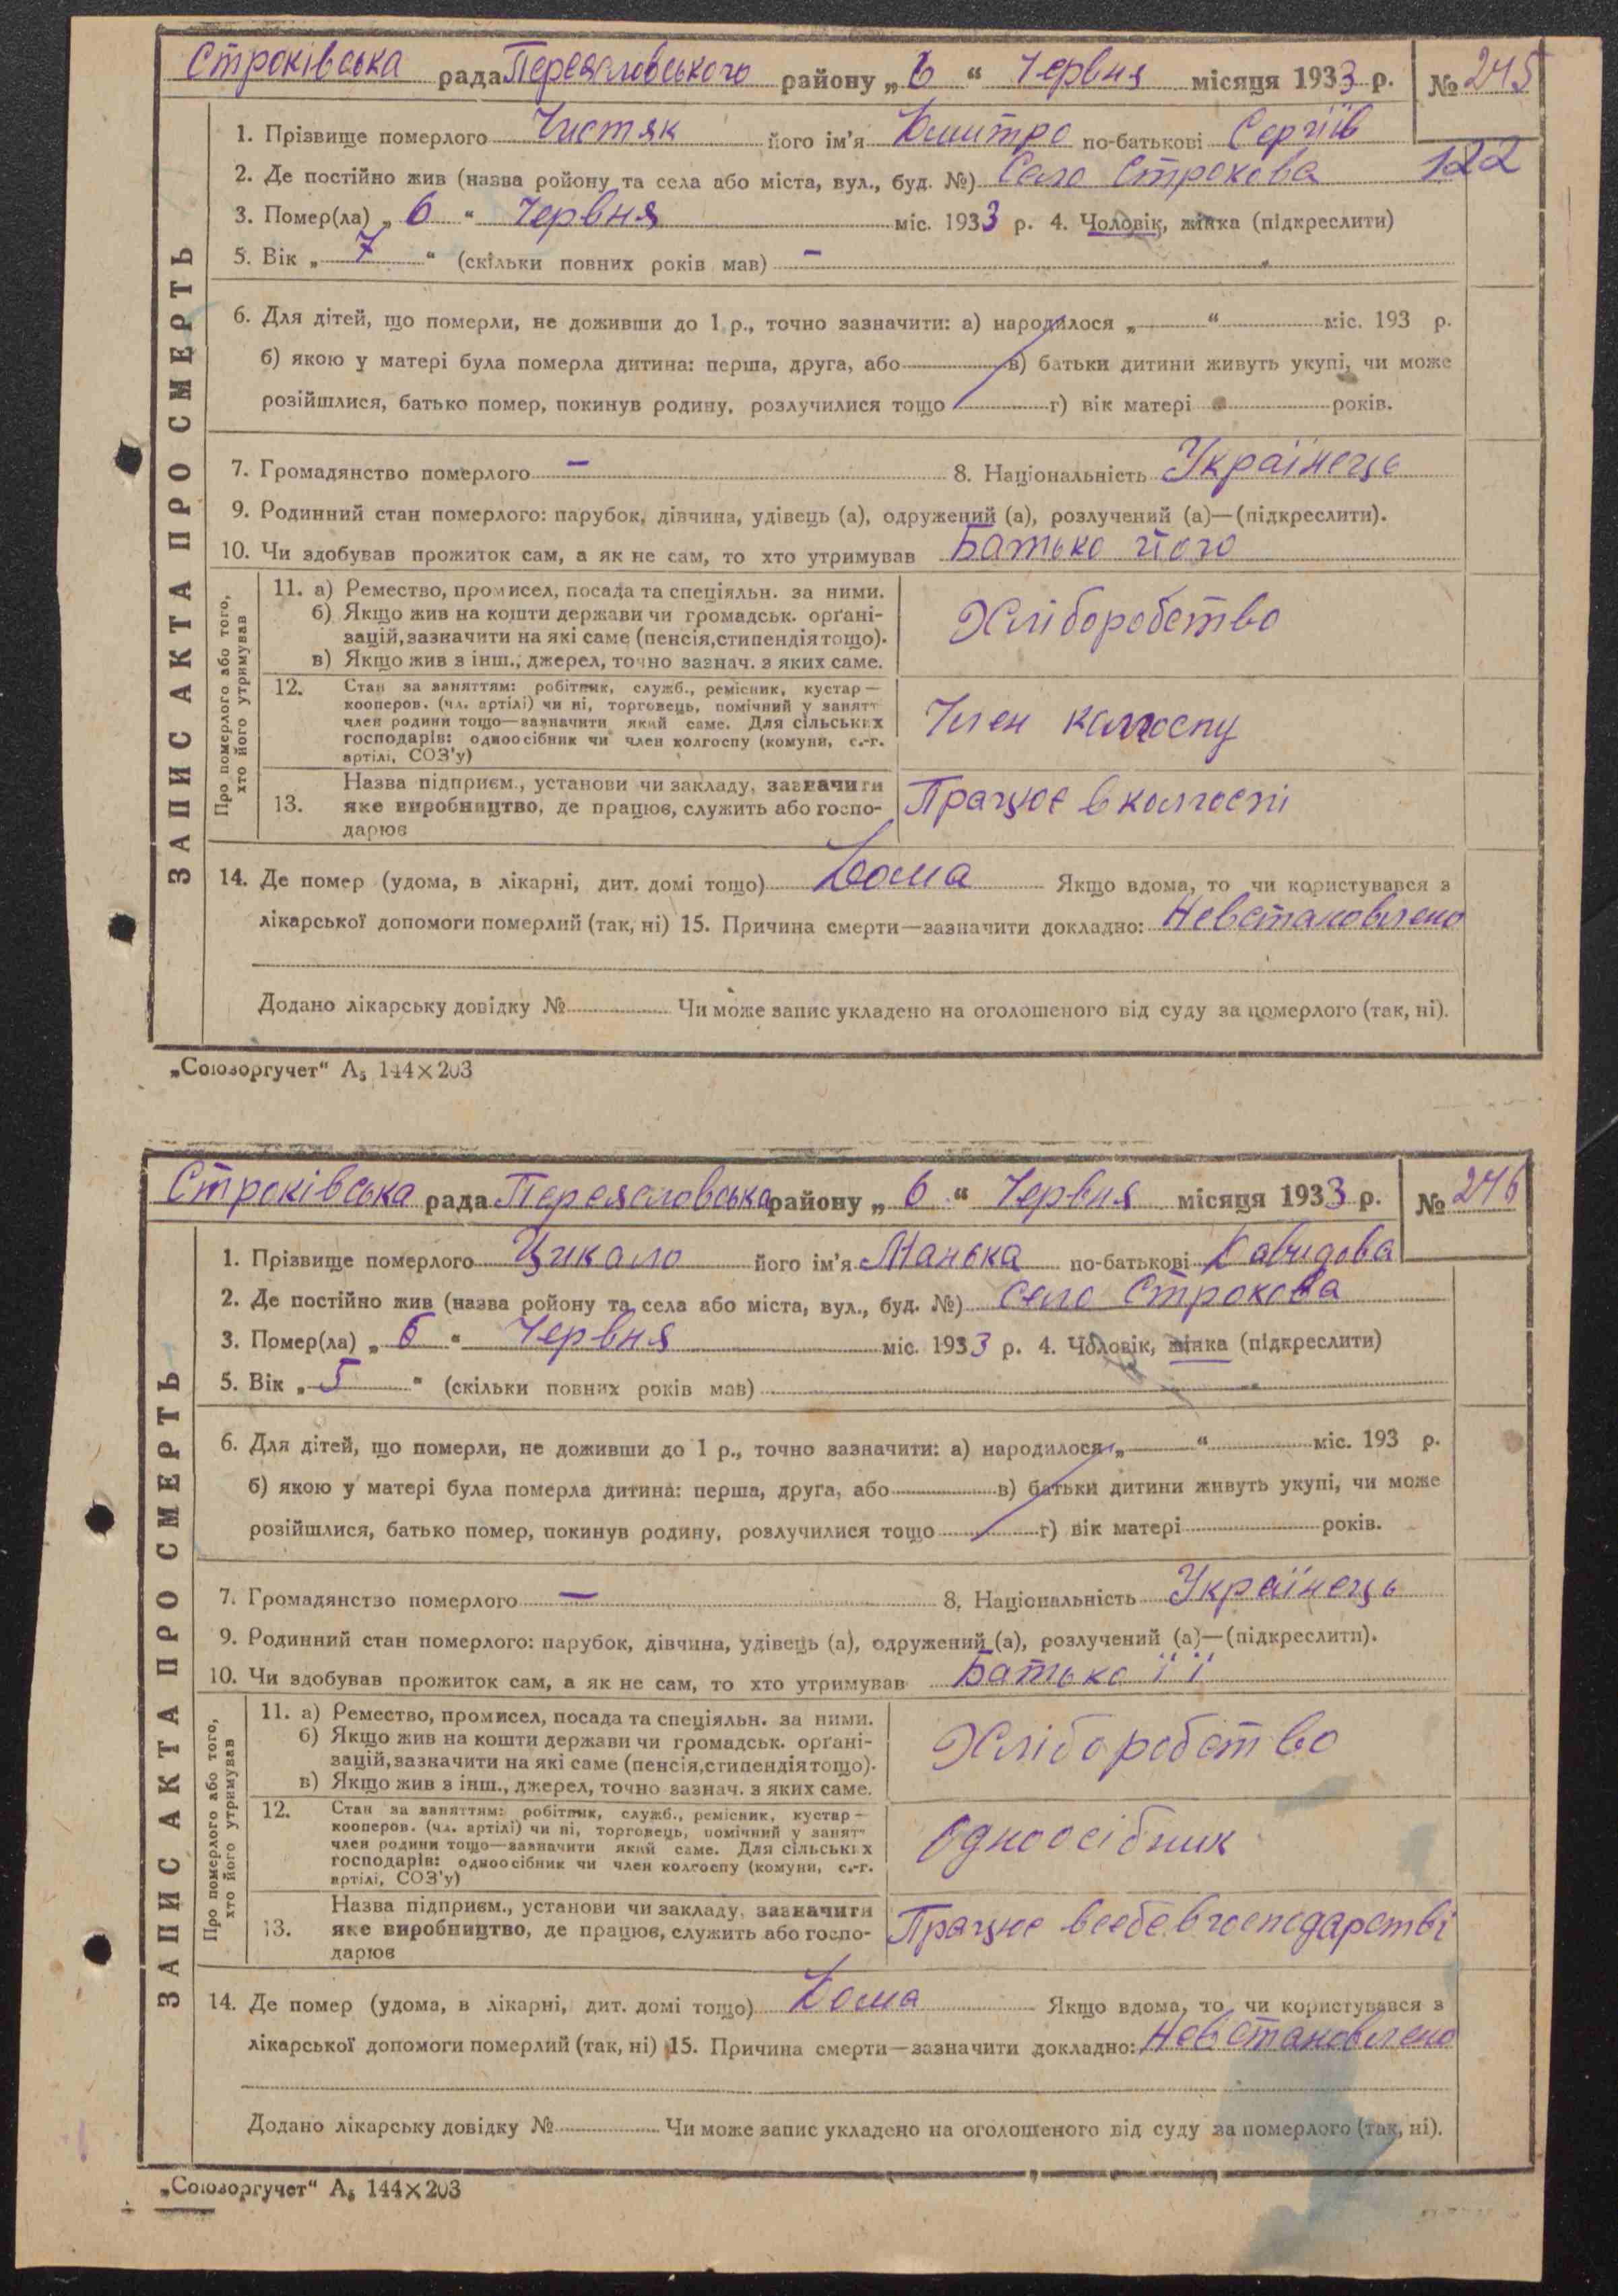 Строківська рада Переясловського району „ 6 “ Червня місяця 1933 р. № 245
1. Прізвище померлого Чистяк його ім'я Дмитро по-батькові Сергіїв
122
2. Де постійно жив (назва ройону та села або міста, вул., буд. №) Село Строкова
3. Помер(ла) „ 6 “ Червня міс. 1933 р. 4. Чоловік, жінка (підкреслити)
5. Вік „ 7 “ (скільки повних років мав) –
6. Для дітей, що померли, не доживши до 1 р., точно зазначити: а) народилося „ “ міс. 193 р.
б) якою у матері була померла дитина: перша, друга, або в) батьки дитини живуть укупі, чи може
розійшлися, батько помер, покинув родину, розлучилися тощо г) вік матері років.
7. Громадянство померлого – 8. Національність Українець
9. Родинний стан померлого: парубок, дівчина, удівець (а), одружений (а), розлучений (а)—(підкреслити).
10. Чи здобував прожиток сам, а як не сам, то хто утримував Батько його
ЗАПИС АКТА ПРО СМЕРТЬ
Про померлого або того,
хто його утримував
11. а) Ремество, промисел, посада та спеціяльн. за ними.
б) Якщо жив на кошти держави чи громадськ. орґані-
зацій, зазначити на які саме (пенсія, стипендія тощо).
в) Якщо жив з інш., джерел, точно зазнач. з яких саме.
Хліборобство
12. Стан за заняттям: робітник, служб., ремісник, кустар—
кооперов. (чл. артілі) чи ні, торговець, помічний у занятт
член родини тощо—зазначити який саме. Для сільських
господарів: одноосібник чи член колгоспу (комуни, с.-г.
артілі, СОЗ'у)
Член колгоспу
13. Назва підприєм., установи чи закладу, зазначити
яке виробництво, де працює, служить або госпо-
дарює
Працює в колгоспі
14. Де помер (удома, в лікарні, дит. домі тощо) Дома Якщо вдома, то чи користувався з
лікарської допомоги померлий (так, ні) 15. Причина смерти—зазначити докладно: Невстановлено
Додано лікарську довідку № Чи може запис укладено на оголошеного від суду за померлого (так, ні).
„Союзоргучет“ А₅ 144×203
Строківська рада Переясловська району „ 6 “ Червня місяця 1933 р. № 246
1. Прізвище померлого Цикало його ім'я Манька по-батькові Давидова
2. Де постійно жив (назва ройону та села або міста, вул., буд. №) Село Строкова
3. Помер(ла) „ 6 “ Червня міс. 1933 р. 4. Чоловік, жінка (підкреслити)
5. Вік „ 5 “ (скільки повних років мав)
6. Для дітей, що померли, не доживши до 1 р., точно зазначити: а) народилося „ “ міс. 193 р.
б) якою у матері була померла дитина: перша, друга, або в) батьки дитини живуть укупі, чи може
розійшлися, батько помер, покинув родину, розлучилися тощо г) вік матері років.
7. Громадянство померлого – 8. Національність Українець
9. Родинний стан померлого: парубок, дівчина, удівець (а), одружений (а), розлучений (а)—(підкреслити).
10. Чи здобував прожиток сам, а як не сам, то хто утримував Батько її
ЗАПИС АКТА ПРО СМЕРТЬ
Про померлого або того,
хто його утримував
11. а) Ремество, промисел, посада та спеціяльн. за ними.
б) Якщо жив на кошти держави чи громадськ. орґані-
зацій, зазначити на які саме (пенсія, стипендія тощо).
в) Якщо жив з інш., джерел, точно зазнач. з яких саме.
Хліборобство
12. Стан за заняттям: робітник, служб., ремісник, кустар—
кооперов. (чл. артілі) чи ні, торговець, помічний у занятт
член родини тощо—зазначити який саме. Для сільських
господарів: одноосібник чи член колгоспу (комуни, с.-г.
артілі, СОЗ'у)
Одноосібник
13. Назва підприєм., установи чи закладу, зазначити
яке виробництво, де працює, служить або госпо-
дарює
Працює всебе вгосподарстві
14. Де помер (удома, в лікарні, дит. домі тощо) Дома Якщо вдома, то чи користувався з
лікарської допомоги померлий (так, ні) 15. Причина смерти—зазначити докладно: Невстановлено
Додано лікарську довідку № Чи може запис укладено на оголошеного від суду за померлого (так, ні).
„Союзоргучет“ А₅ 144×203